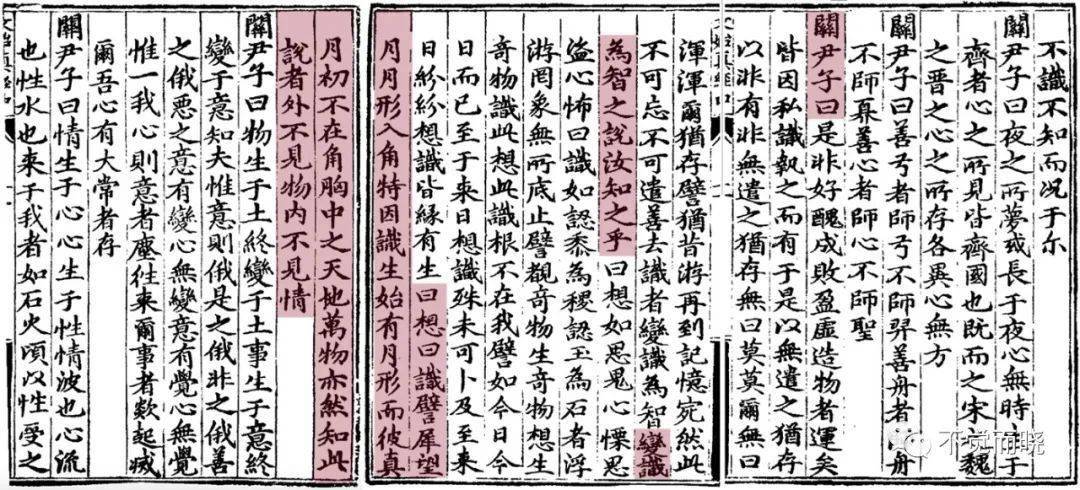 不識不知而况于尓
關尹子曰夜之所夢或長于夜心無時于
齊者心之所見皆齊國也既而之宋魏
之晋之心之所存各異心無方
關尹子曰善弓者師弓不師羿善舟者舟
不師奡善心者師心不師聖
關尹子曰是非好醜成敗盈虛造物者運矣
皆因私識執之而有于是以無遣之猶存
以非有非無遣之猶存無曰莫莫爾無曰
渾渾爾猶存譬猶昔游再到記憶宛然此
不可忘不可遣善去識者變識為智變識
為智之說汝知之乎曰想如思鬼心慄思
盜心怖曰識如認黍為稷認玉為石者浮
游罔象無所底止譬覩奇物生奇物想生
奇物識此想此識根不在我譬如今日今
日而已至于来日想識殊未可卜及至来
日紛紛想識皆緣有生曰想曰識譬犀望
月月形入角特因識生始有月形而彼真
月初不在角胸中之天地萬物亦然知此
說者外不見物内不見情
關尹子曰物生于土終變于土事生于意終
變于意知夫惟意則俄是之俄非之俄善
之俄惡之意有變心無變意有覺心無覺
惟一我心則意者塵往来爾事者欻起滅
爾吾心有大常者存
關尹子曰情生于心心生于性情波也心流
也性水也来于我者如石火頃以性受之
不觉而晓